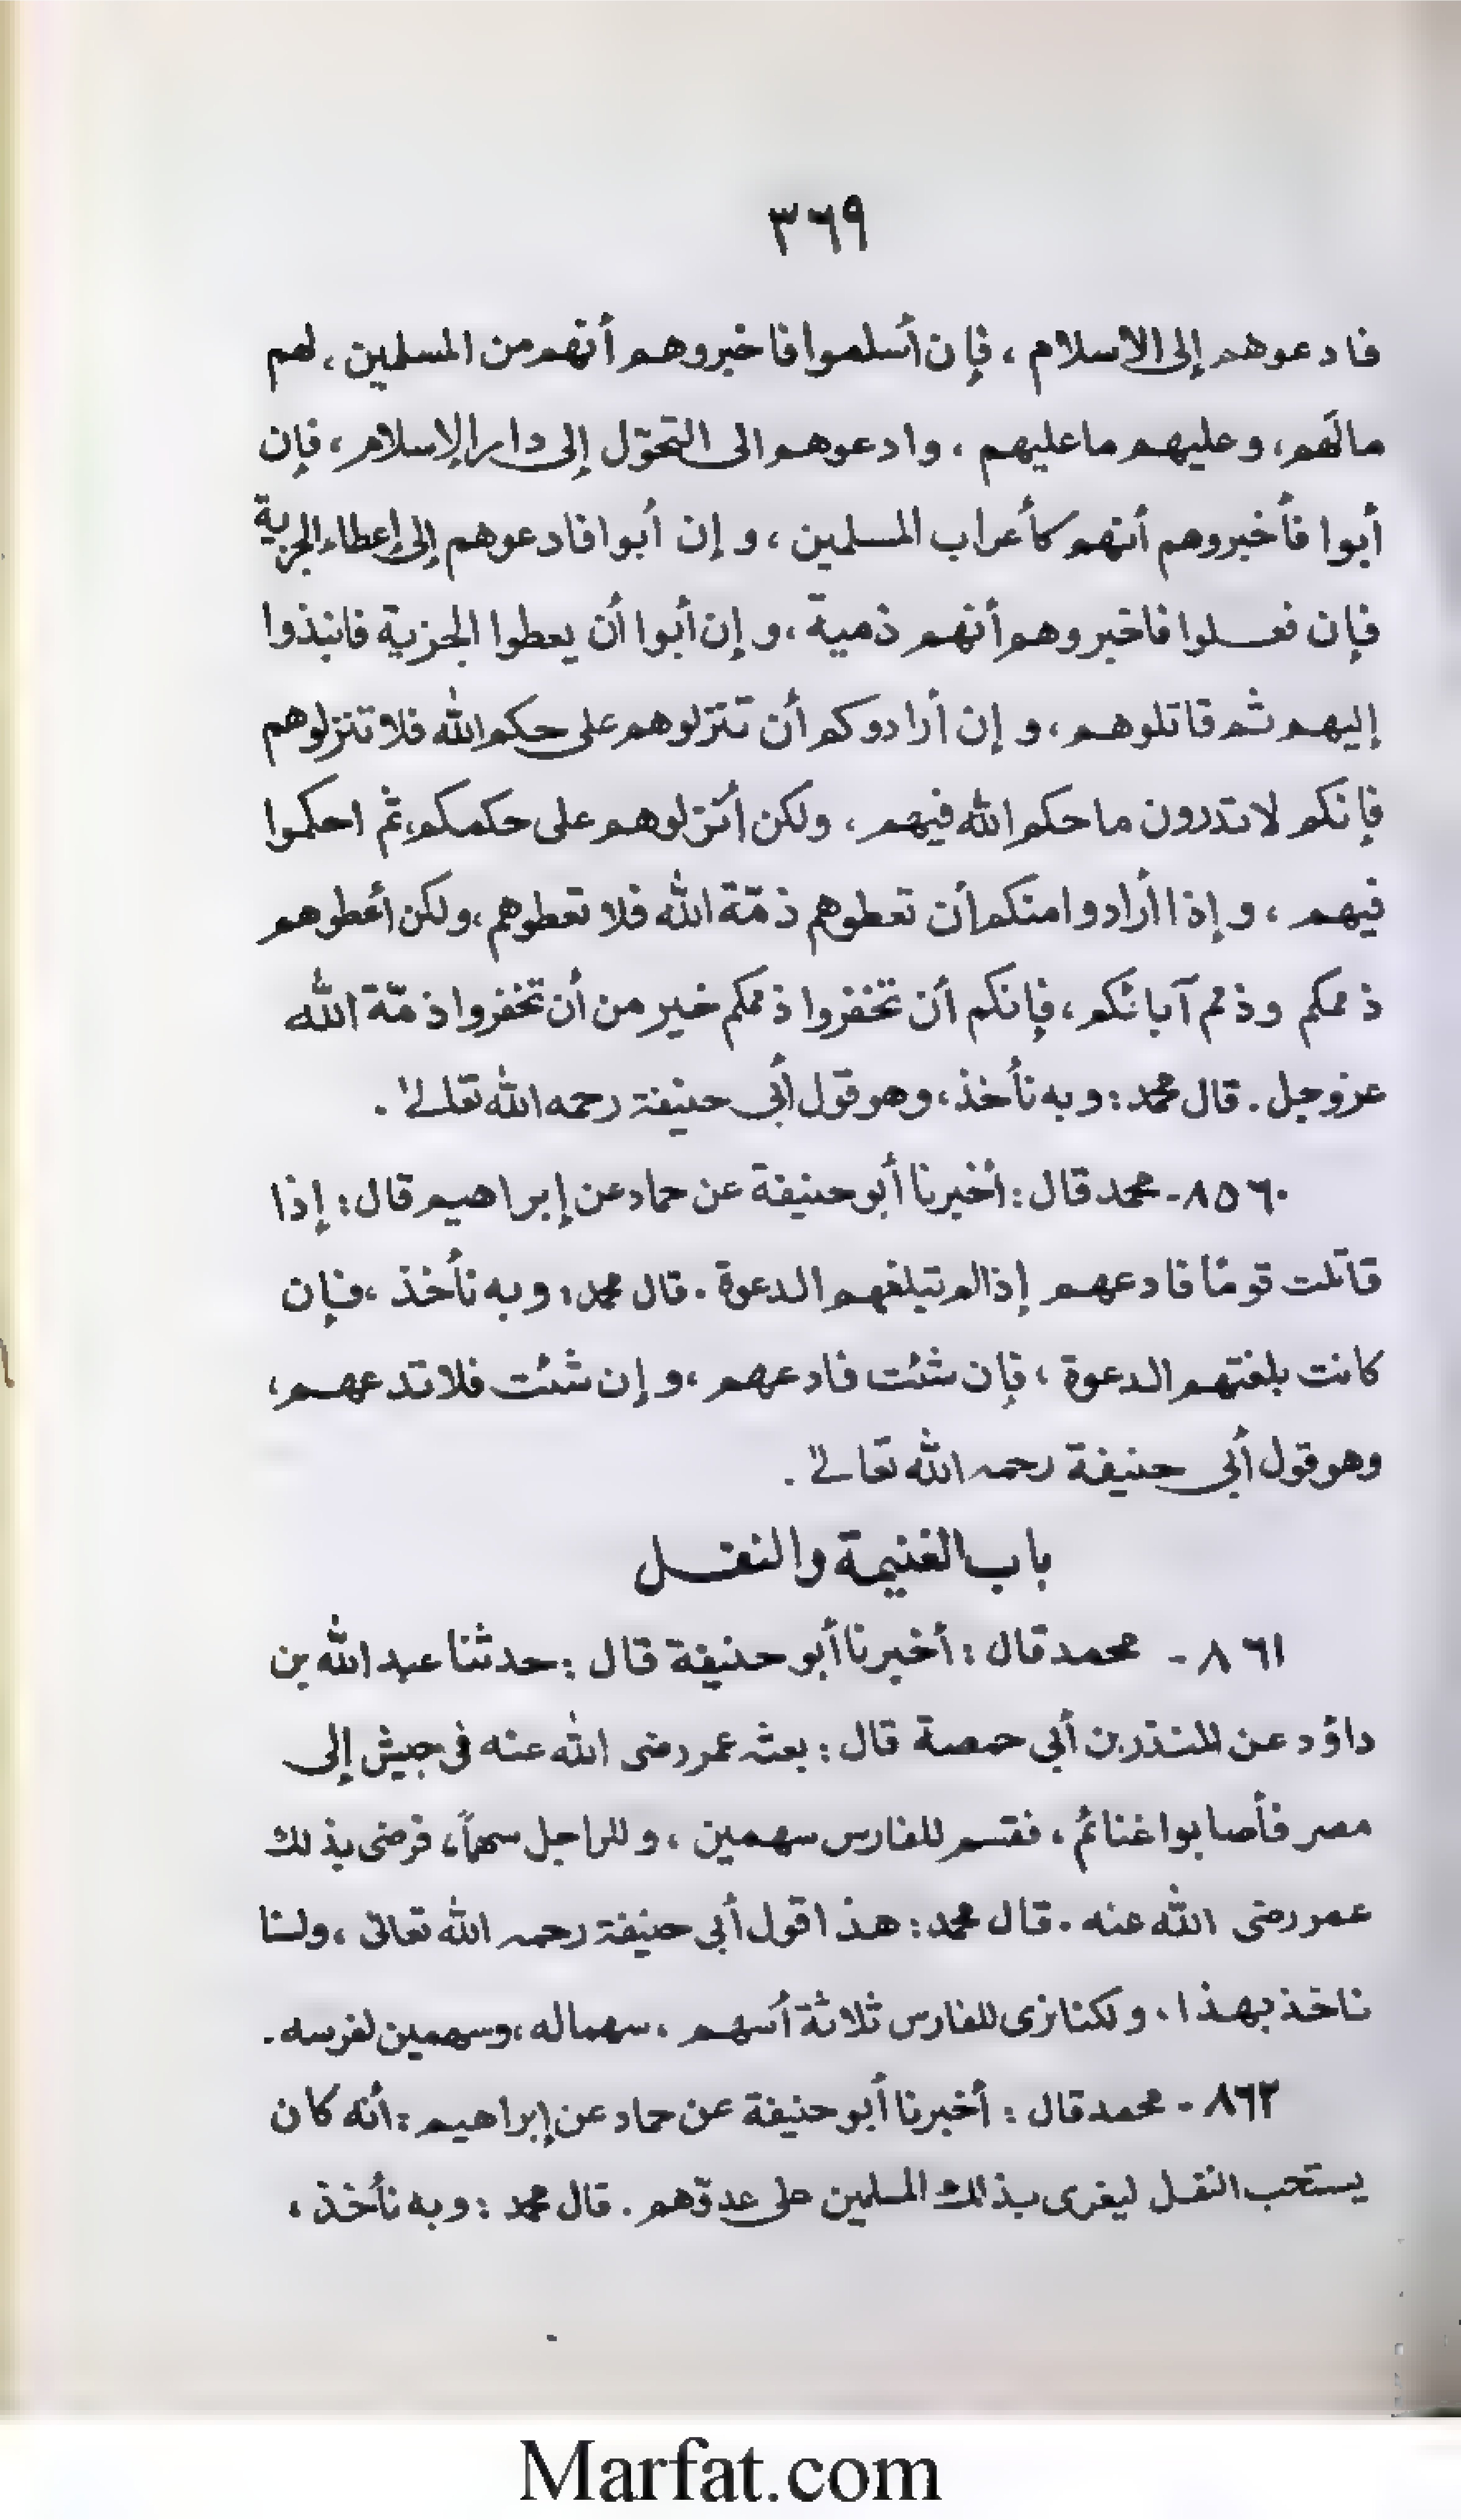 ٣٦٩
فادعوهم إلى الإسلام ، فإن أسلموا فاخبروهم أنهم من المسلمين ، لهم
مالَهم، وعليهم ماعليهم ، وادعوهم الى التحوّل إلى دار الإسلام، فإن
أبوا فأخبروهم أنهم كأعراب المسلمين ، و إن أبوا فادعوهم إلى إعطاء الجزية
فإن فعلوا فاخبروهم أنهم ذمية ، و إن أبوا أن يعطوا الجزية فانبذوا
إليهم ثم قاتلوهم، و إن أرادوكم أن تنزلوهم على حكم الله فلا تنزلوهم
فإنكم لا تدرون ما حكم الله فيهم ، ولكن أنزلوهم على حكمكم، ثم احكموا
فيهم ، و إذا أرادوا منكم أن تعطوهم ذمّة الله فلا تعطوهم ، ولكن أعطوهم
ذممكم وذمم آبائكم ، فإنكم أن تخفروا ذممكم خير من أن تخفروا ذمّة الله
عزوجل . قال محمد : وبه نأخذ ، وهو قول أبي حنيفة رحمه الله تعالى .
٨٥٦٠ - محمد قال : أخبرنا أبو حنيفة عن حماد عن إبراهيم قال : إذا
قاتلت قومًا فادعهم إذا لم تبلغهم الدعوة . قال محمد : وبه نأخذ ، فإن
كانت بلغتهم الدعوة ، فإن شئت فادعهم ، و إن شئت فلا تدعهم ،
وهو قول أبي حنيفة رحمه الله تعالى .
باب الغنيمة والنفل
٨٦١ - محمد قال : أخبرنا أبو حنيفة قال : حدثنا عبد الله بن
داؤد عن المنذر بن أبي حمصة قال : بعثه عمر رضى الله عنه فى جيش إلى
مصر فأصابوا غنائم ، فقسم للفارس سهمين ، وللراجل سهماً ، فرضى بذلك
عمر رضى الله عنه . قال محمد : هذا قول أبي حنيفة رحمه الله تعالى ، ولسنا
ناخذ بهذا ، ولكنا نرى للفارس ثلاثة أسهم ، سهما له ، وسهمين لفرسه .
٨٦٢ - محمد قال : أخبرنا أبو حنيفة عن حماد عن إبراهيم : أنه كان
يستحب النفل ليغرى بذلك المسلمين على عدوّهم . قال محمد : وبه نأخذ ،
Marfat.com